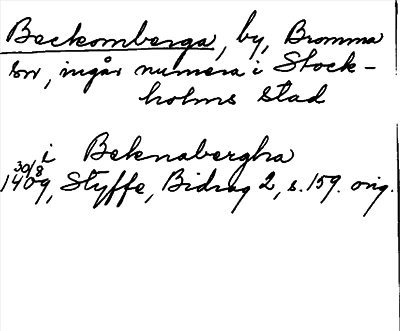 Beckomberga, by, Bromma
sn, ingår numera i Stock-
holms stad
i Beknabergha
30/8
1409, Styffe, Bidrag 2, s. 159. orig.